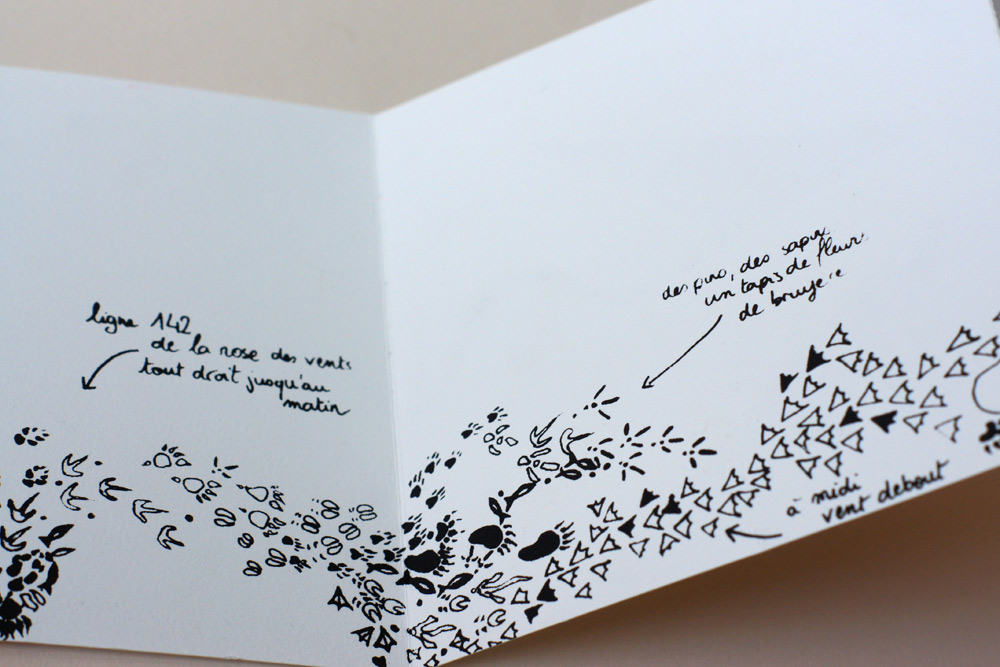 ligne 142
de la rose des vents
tout droit jusqu'au
matin
des pins, des sapins
un tapis de fleurs
de bruyère
à midi
vent debout